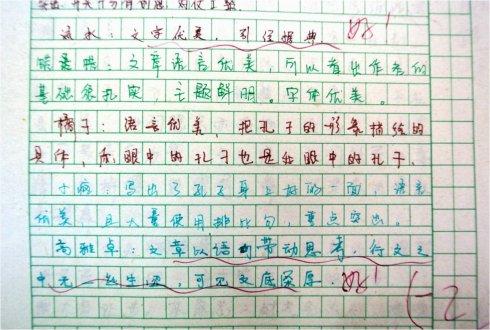 流水：文字优美，引经据典。 好！
文章语言优美，可以看出作者的
基础很扎实，主题鲜明。字体优美。
橘子：语言优美，把孔子的形象描绘的
具体，你眼中的孔子也是我眼中的孔子。
写出了孔子身上好的一面，语言
优美，且大量使用排比句，重点突出。
高雅卓：文章以语句带动思考，行文之
中无一丝生涩，可见文底深厚。 好！
-2